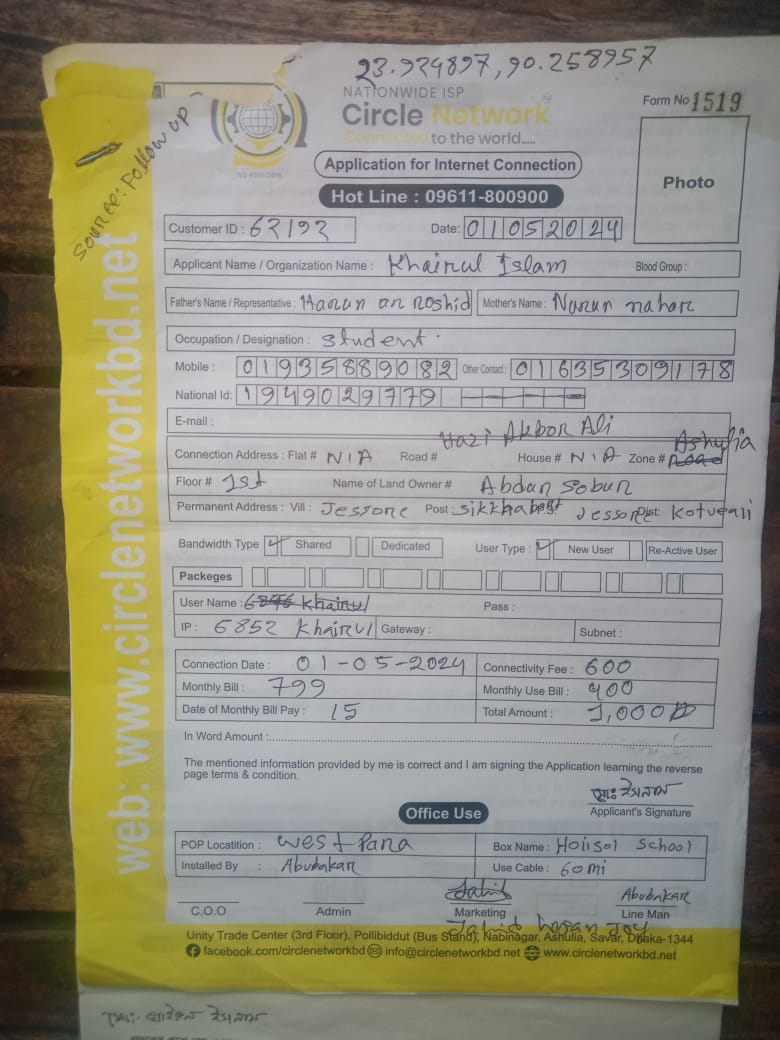 23.924897, 90.258957
NATIONWIDE ISP
Circle Network
Connected to the world.....
Form No 1519
Source: Follow up
Application for Internet Connection
Photo
Hot Line : 09611-800900
Customer ID : 62192
Date: 01052024
Applicant Name / Organization Name : Khairul Islam Blood Group :
Father's Name / Representative : Harun an roshid Mother's Name : Nurun nahar
Occupation / Designation : student
Mobile : 01935889082 Other Contact : 01635309178
National Id: 1949029779
E-mail :
Hazi Akbor Ali Ashulia
Connection Address : Flat # N/A Road # House # N/A Zone #
Floor # 1st Name of Land Owner # Abdus Sobur
Permanent Address : Vill : Jessore Post : Jessore Dist: Kotwali
Bandwidth Type Shared Dedicated User Type : New User Re-Active User
Packeges
User Name : Khairul Pass :
IP : 6852 Khairul Gateway : Subnet :
Connection Date : 01-05-2024 Connectivity Fee : 600
Monthly Bill : 799 Monthly Use Bill : 400
Date of Monthly Bill Pay : 15 Total Amount : 1,000
In Word Amount :
The mentioned information provided by me is correct and I am signing the Application learning the reverse
page terms & condition.
মোঃ ইসলাম
Applicant's Signature
Office Use
POP Locatition : West Para Box Name : Holisol School
Installed By : Abubakar Use Cable : 60 mi
Jahid Abubakar
C.O.O Admin Marketing Line Man
Jahid hasan Joy
Unity Trade Center (3rd Floor), Pollibiddut (Bus Stand), Nabinagar, Ashulia, Savar, Dhaka-1344
facebook.com/circlenetworkbd info@circlenetworkbd.net www.circlenetworkbd.net
web: www.circlenetworkbd.net